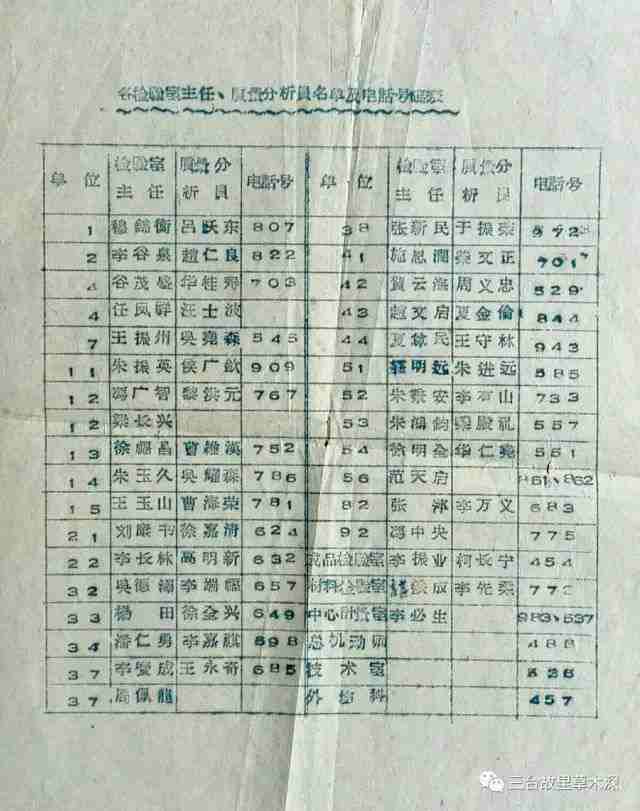 各检验室主任、质量分析員名单及电話号碼表
单位 检验室主任 质量分析員 电話号 单位 检验室主任 质量分析員 电話号
1 穆錦衡 呂跃东 807 38 张新民 于振荣 572
2 李谷泉 趙仁良 822 41 施恩潤 文正 701
4 谷茂盛 华桂芬 703 42 賀云海 周义忠 529
4 任凤群 汪士波 43 趙文启 夏金倫 844
7 王振州 吳堯森 545 44 夏惊民 王守林 943
11 朱振英 侯广歆 909 51 明远 朱进远 585
12 馮广智 黎洪元 767 52 朱秉安 李有山 733
12 梁长兴 53 朱鴻鈞 梁殿礼 557
13 徐耀昌 曹維漢 752 54 徐明全 华仁亮 551
14 朱玉久 吳耀森 786 56 范天启 851、852
15 王玉山 曹海荣 781 82 张萍 李万义 683
21 刘殿书 徐嘉清 624 92 馮中央 775
22 李长林 高明新 632 成品检验室 李振业 柯长宁 454
32 吳德 李端福 657 材料检验室 成 李先 772
33 楊田 徐金兴 649 中心計量室 李必生 983、537
34 潘仁勇 李嘉祺 698 总机动师 488
37 李变成 王永奇 685 技术室 526
37 周佩龍 外 科 457
三台故里草木深